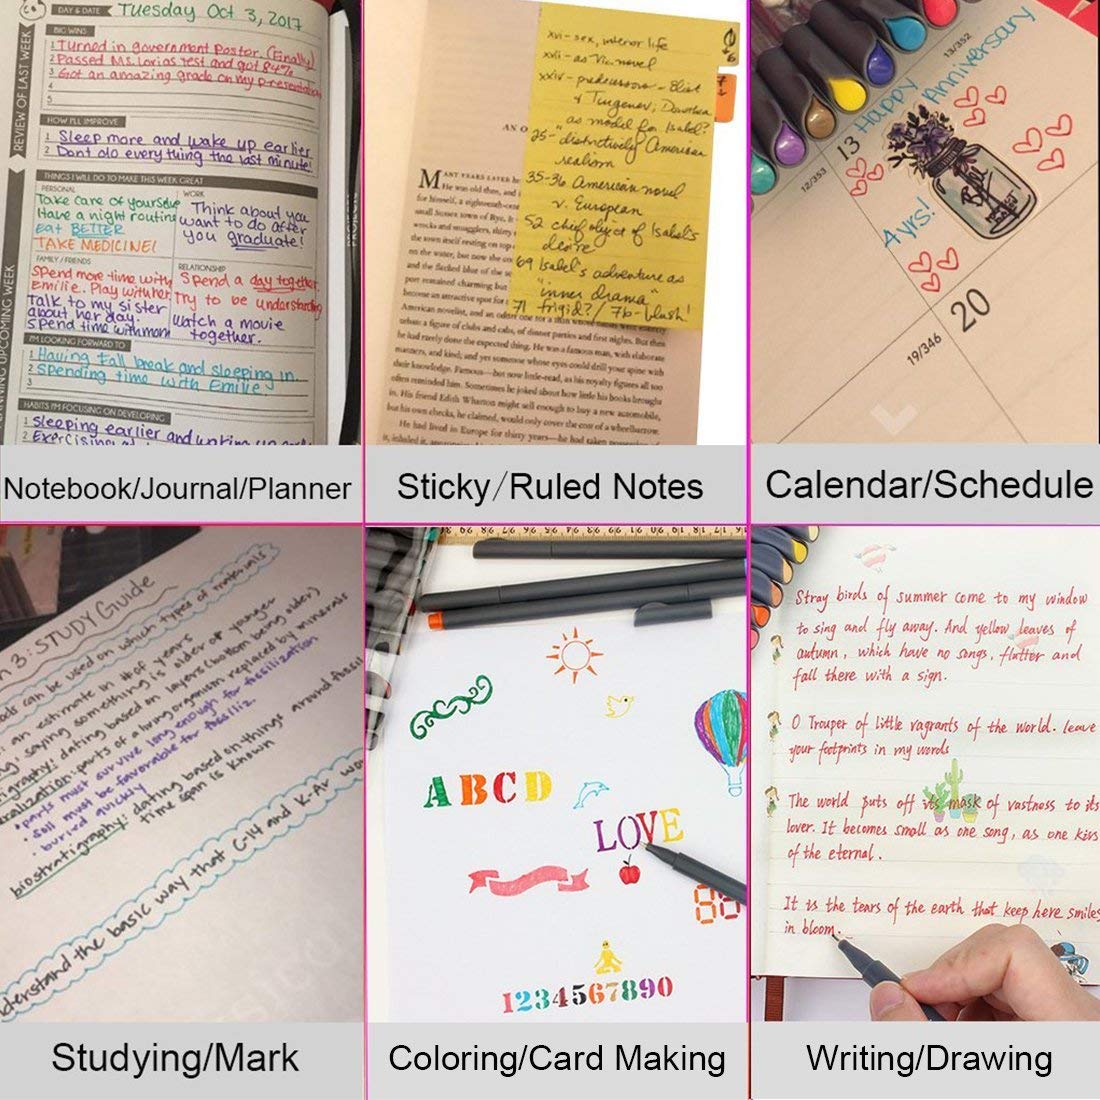 DAY & DATE Tuesday Oct 3, 2017
REVIEW OF LAST WEEK
BIG WINS
1 Turned in government Poster. (Finally)
2 Passed Ms. Lorias test and got 84%
3 Got an amazing grade on my presentation
4
5
HOW I'LL IMPROVE
1 Sleep more and wake up earlier
2 Dont do everything the last minute!
PLANNING UPCOMING WEEK
THINGS I WILL DO TO MAKE THIS WEEK GREAT
PERSONAL
Take care of yourselve
Have a night routine
eat BETTER
TAKE MEDICINE!
WORK
Think about you
want to do after
you graduate!
FAMILY / FRIENDS
Spend more time with
Emilie. Play with her
talk to my sister
about her day.
Spend time with mom
RELATIONSHIP
Spend a day together
Try to be understanding
Watch a movie
together.
I'M LOOKING FORWARD TO
1 Having fall break and sleeping in.
2 Spending time with Emilie.
3
HABITS I'M FOCUSING ON DEVELOPING
1 Sleeping earlier and waking up
2 Exercising
PROJECTS
Notebook/Journal/Planner
xvi - sex, interior life
xvii - as Vic. novel
xxiv - predecessors - Eliot
+ Turgenev; Dorothea
as model for Isabel?
25 - "distinctively American
realism
35-36 American novel
v. European
52 chief object of Isabel's
desire
69 Isabel's adventure as
"inner drama"
71 frigid? / 76 - blush!
AN O
MANY YEARS LATER he
He was old then, and
for himself, a eighteenth-cen
small Sussex town of Rye. It
wrecks and smugglers, thirty
the town itself resting on top
on the water, but now the
and the flecked blue of the se
port remained charming but
become an attractive spot for
American novelist, and an
urban: a figure of clubs and cabs, of dinner parties and first nights. But then
he had rarely done the expected thing. He was a famous man, with elaborate
manners, and kind; and yet someone whose eyes could drill your spine with
their knowledge. Famous—but now little-read, as his royalty figures all too
often reminded him. Sometimes he joked about how little his books brought
in. His friend Edith Wharton might sell enough to buy a new automobile,
but his own checks, he claimed, would only cover the cost of a wheelbarrow.
He had lived in Europe for thirty years—he had taken possession of
it, inhaled it,
Sticky/Ruled Notes
13/352
Happy Anniversary
13
12/353
4 yrs!
20
19/346
Calendar/Schedule
3: STUDY Guide
can be used on which types of materials
: an estimate in # of years
: saying something is older or younger
: dating based on layers (bottom being older)
: parts of a living organism replaced by minerals
• parts must survive long enough for fossilization
• soil must be favorable for fossiliz.
• buried quickly
biostratigraphy: dating based on things around fossil
time span is known
understand the basic way that C-14 and K-Ar
Studying/Mark
16 17 18 19 20 21 22 23 24 25 26 27 28 29 30
ABCD
LOVE
88
1234567890
Coloring/Card Making
Stray birds of summer come to my window
to sing and fly away. And yellow leaves of
autumn, which have no songs, flutter and
fall there with a sign.
O Trouper of little vagrants of the world. leave
your footprints in my words
The world puts off its mask of vastness to its
lover. It becomes small as one song, as one kiss
of the eternal.
It is the tears of the earth that keep here smiles
in bloom.
Writing/Drawing